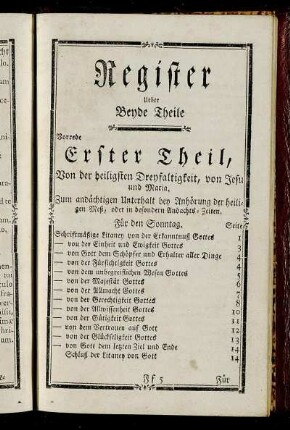 Register
Ueber
Beyde Theile
Vorrede
Erster Theil,
Von der heiligsten Dreyfaltigkeit, von Jesu
und Maria,
Zum andächtigen Unterhalt bey Anhörung der heili-
gen Meß, oder in besondern Andachts-Zeiten.
Für den Sonntag. Seite
Schriftmäßige Litaney von der Erkanntnuß Gottes 1
— von der Einheit und Ewigkeit Gottes
— von Gott dem Schöpfer und Erhalter aller Dinge 4
— von der Fürsichtigkeit Gottes
— von dem unbegreiflichen Wesen Gottes
— von der Majestät Gottes
— von der Allmacht Gottes
— von der Gerechtigkeit Gottes
— von der Allwissenheit Gottes
— von der Gütigkeit Gottes
— von dem Vertrauen auf Gott 12
— von der Glückseligkeit Gottes 13
— von Gott dem letzten Ziel und Ende 14
Schluß der Litaney von Gott 14
Ff 5 Für